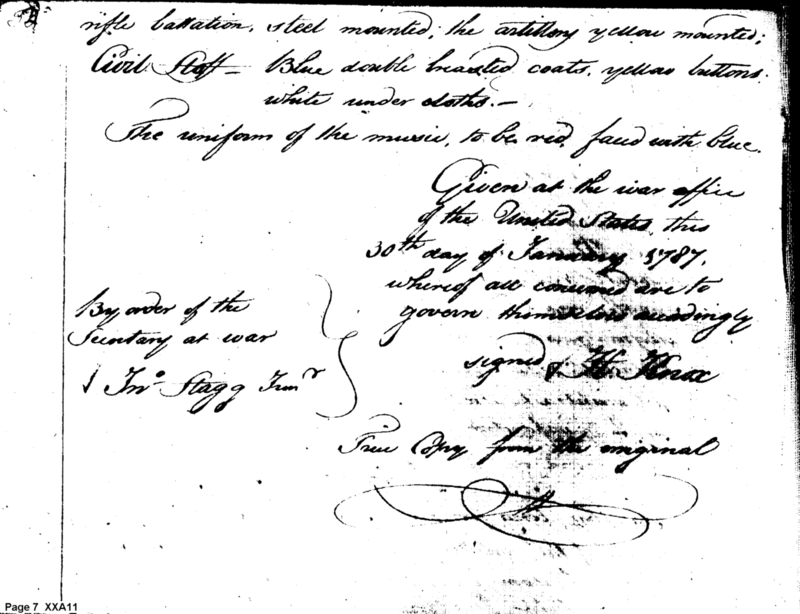 rifle battalion, steel mounted; the artillery yellow mounted;
Civil Staff - Blue double breasted coats, yellow buttons.
white under cloths. -
The uniform of the music, to be red, faced with blue.
Given at the war office
of the United States, this
30th day of January 1787.
whereof all concerned are to
govern themselves accordingly
signed H Knox
By order of the
Secretary at war
Jno. Stagg Junr
True Copy from the original
Page 7 XXA11